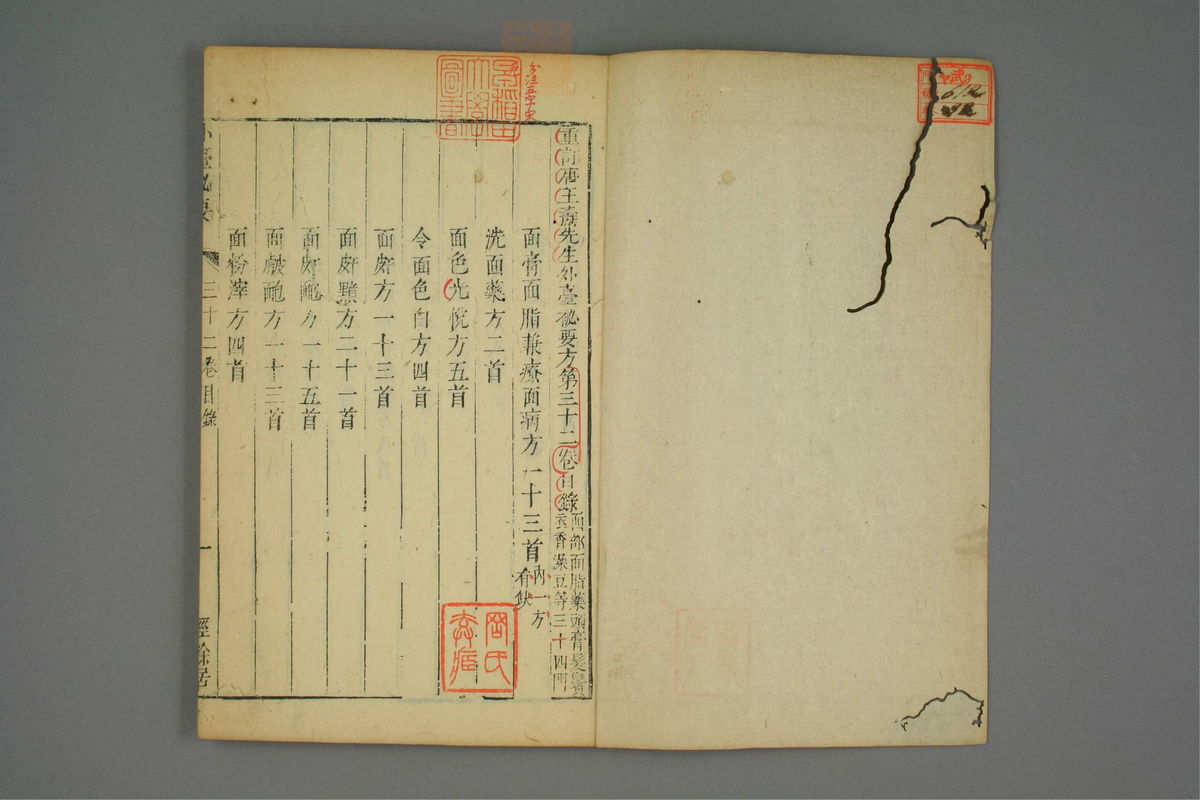 重訂唐王燾先生外臺秘要方第三十二卷目錄
面部面脂藥頭膏髮鬢
衣香澡豆等三十四門
面膏面脂兼療面病方一十三首
內一方
有缺
洗面藥方二首
面色光悅方五首
令面色白方四首
面皯方一十三首
面皯䵳方二十一首
面皯皰方一十五首
面皶皰方一十三首
面粉滓方四首
外臺秘要
三十二卷目錄
一
經餘居
早稻田大學圖書